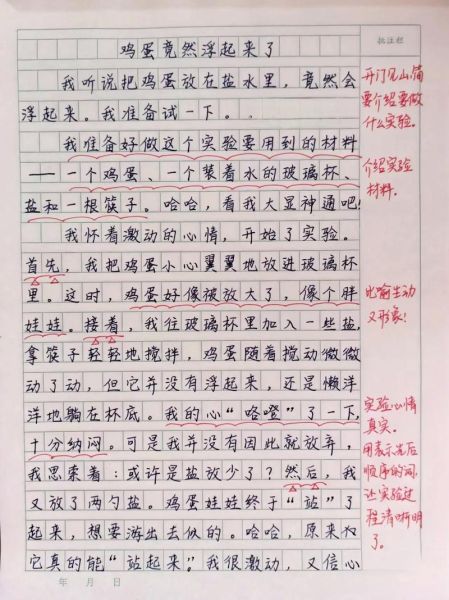 批注栏
鸡蛋竟然浮起来了
我听说把鸡蛋放在盐水里，竟然会
浮起来。我准备试一下。
开门见山，简
要介绍要做
什么实验。
我准备好做这个实验要用到的材料
——一个鸡蛋、一个装着水的玻璃杯、
盐和一根筷子。哈哈，看我大显神通吧！
介绍实验
材料。
我怀着激动的心情，开始了实验。
首先，我把鸡蛋小心翼翼地放进玻璃杯
里。这时，鸡蛋好像被放大了，像个胖
娃娃。接着，我往玻璃杯里加入一些盐，
比喻生动
又形象！
拿筷子轻轻地搅拌，鸡蛋随着搅动微微
动了动，但它并没有浮起来，还是懒洋
洋地躺在杯底。我的心“咯噔”了一下，
十分纳闷。可是我并没有因此就放弃，
我思索着：或许是盐放少了？然后，我
又放了两勺盐。鸡蛋娃娃终于“站”了
起来，想要游出去似的。哈哈，原来
它真的能“站起来”。我很激动，又信心
实验心情
真实。
用表示先后
顺序的词，
让实验过
程清晰明
了。
年 月 日